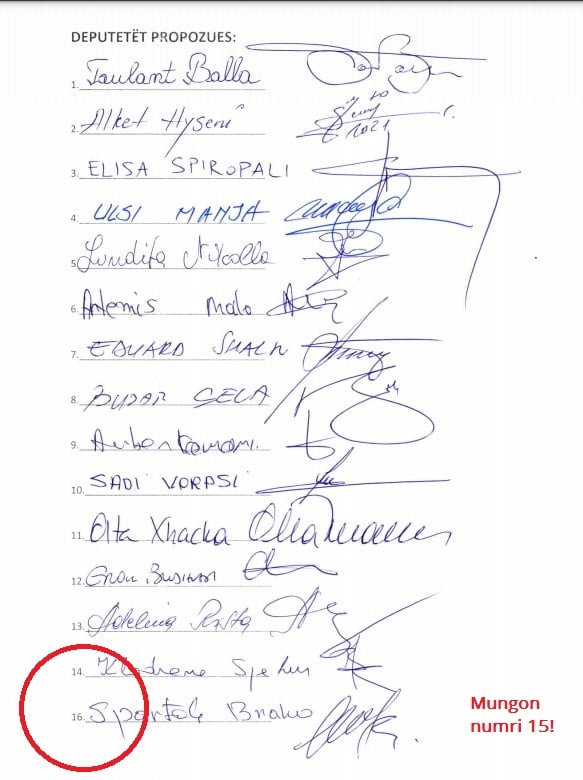 DEPUTETËT PROPOZUES:
1. Taulant Balla
2. Alket Hyseni 2021
3. ELISA SPIROPALI
4. ULSI MANJA
5. Lindita Nikolla
6. Artemis Malo
7. EDUARD SHALSI
8. BUJAR ÇELA
9.
10. SADI VORPSI
11. Olta Xhacka
12.
13. Adelina Rista
14. Klodiana Spahiu
16. Spartak Braho
Mungon
numri 15!